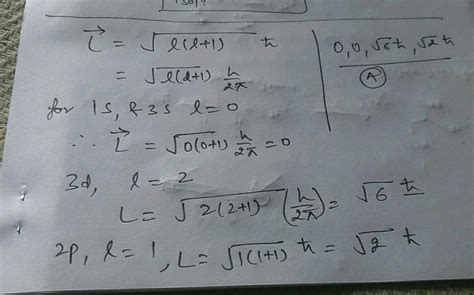 L⃗ = √l(l+1) ħ
= √l(l+1) h/2π
for 1s, & 3s l=0
∴ L⃗ = √0(0+1) h/2π = 0
3d, l = 2
L = √2(2+1) (h/2π) = √6 ħ
2p, l = 1, L = √1(1+1) ħ = √2 ħ
0, 0, √6 ħ, √2 ħ
(A)